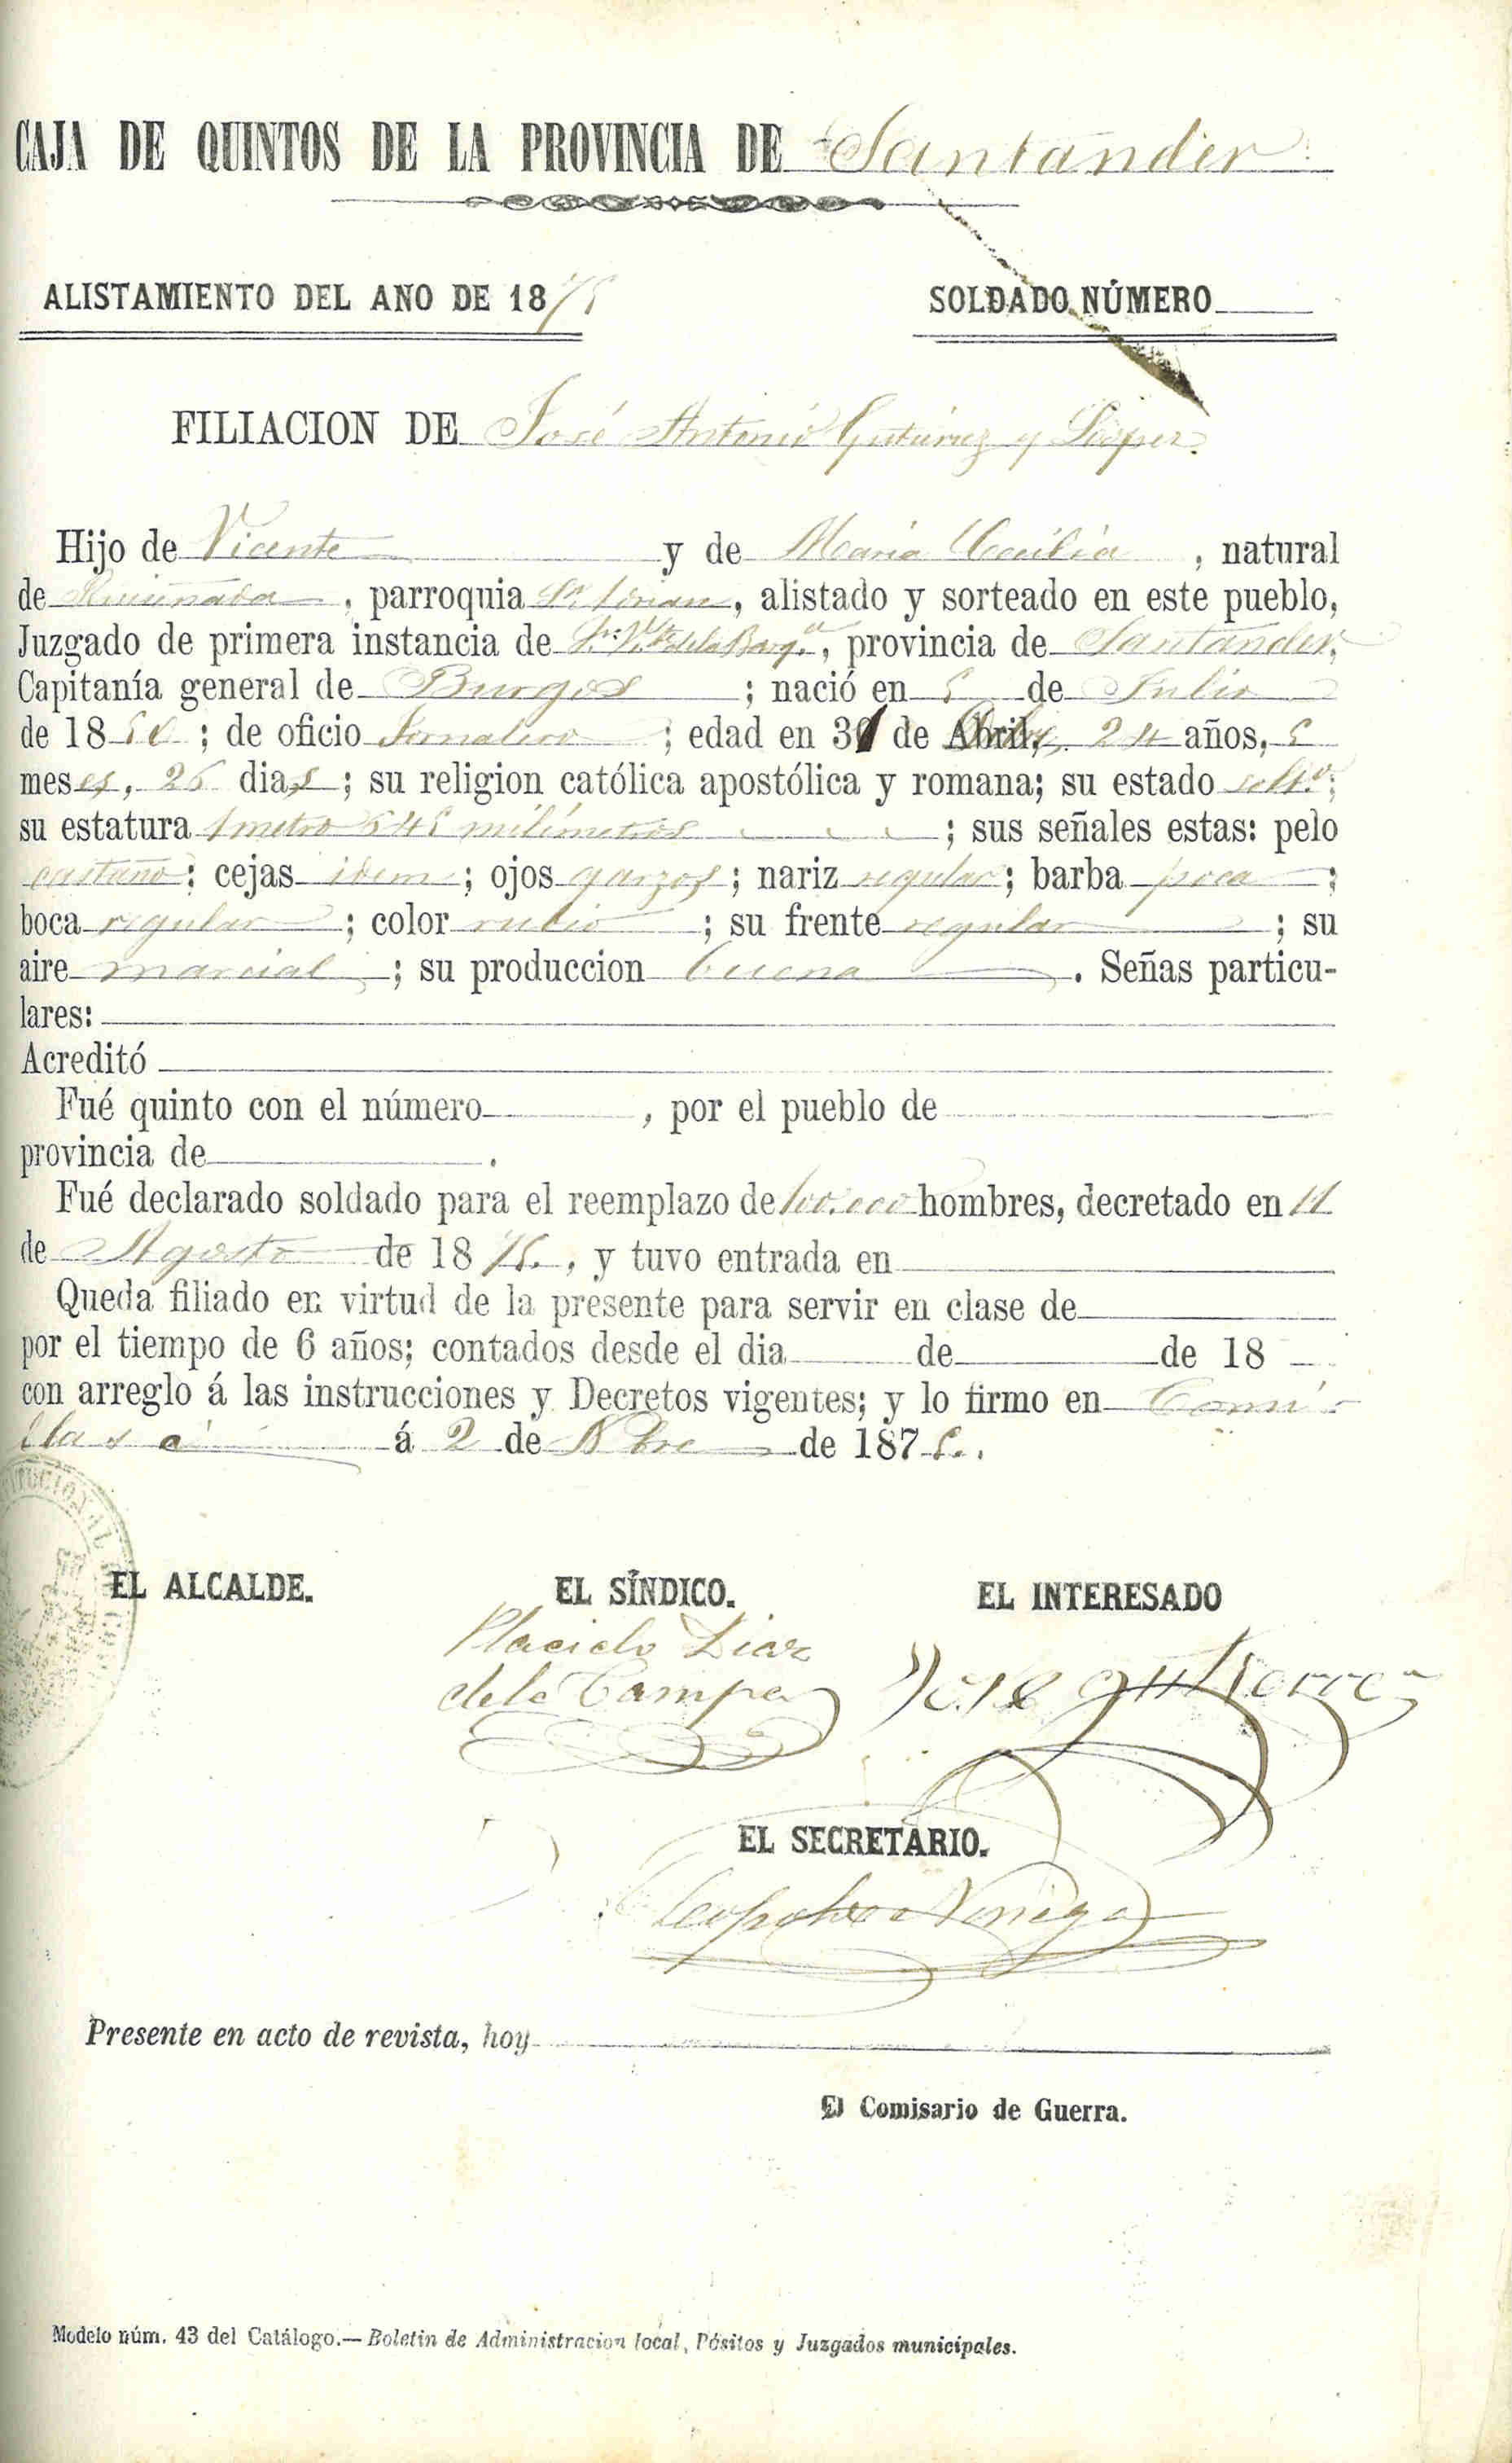 CAJA DE QUINTOS DE LA PROVINCIA DE Santander
ALISTAMIENTO DEL AÑO DE 1875
SOLDADO NÚMERO
FILIACION DE José Antonio Gutierrez y
Hijo de Vicente y de Maria Cecilia, natural
de Ruiseñada, parroquia, alistado y sorteado en este pueblo,
Juzgado de primera instancia de Sn. Vte. de la Barqª, provincia de Santander,
Capitanía general de Burgos; nació en 5 de Julio
de 1850; de oficio Jornalero; edad en 31 de años, 5
meses, 26 dias; su religion católica apostólica y romana; su estado soltº;
su estatura 1 metro 545 milímetros; sus señales estas: pelo
castaño; cejas idem; ojos garzos; nariz regular; barba poca;
boca regular; color rubio; su frente regular; su
aire marcial; su produccion buena. Señas particu-
lares:
Acreditó
Fué quinto con el número, por el pueblo de
provincia de.
Fué declarado soldado para el reemplazo de 100.000 hombres, decretado en 11
de Agosto de 1875., y tuvo entrada en
Queda filiado en virtud de la presente para servir en clase de
por el tiempo de 6 años; contados desde el dia de de 18
con arreglo á las instrucciones y Decretos vigentes; y lo firmo en Comi-
llas á 2 de de 1875.
EL ALCALDE. EL SÍNDICO. EL INTERESADO
Placido Diaz
de la Campa
Jose gutierrez
EL SECRETARIO.
Leopoldo Noriega
Presente en acto de revista, hoy
El Comisario de Guerra.
Modelo núm. 43 del Catálogo.—Boletin de Administracion local, Pósitos y Juzgados municipales.